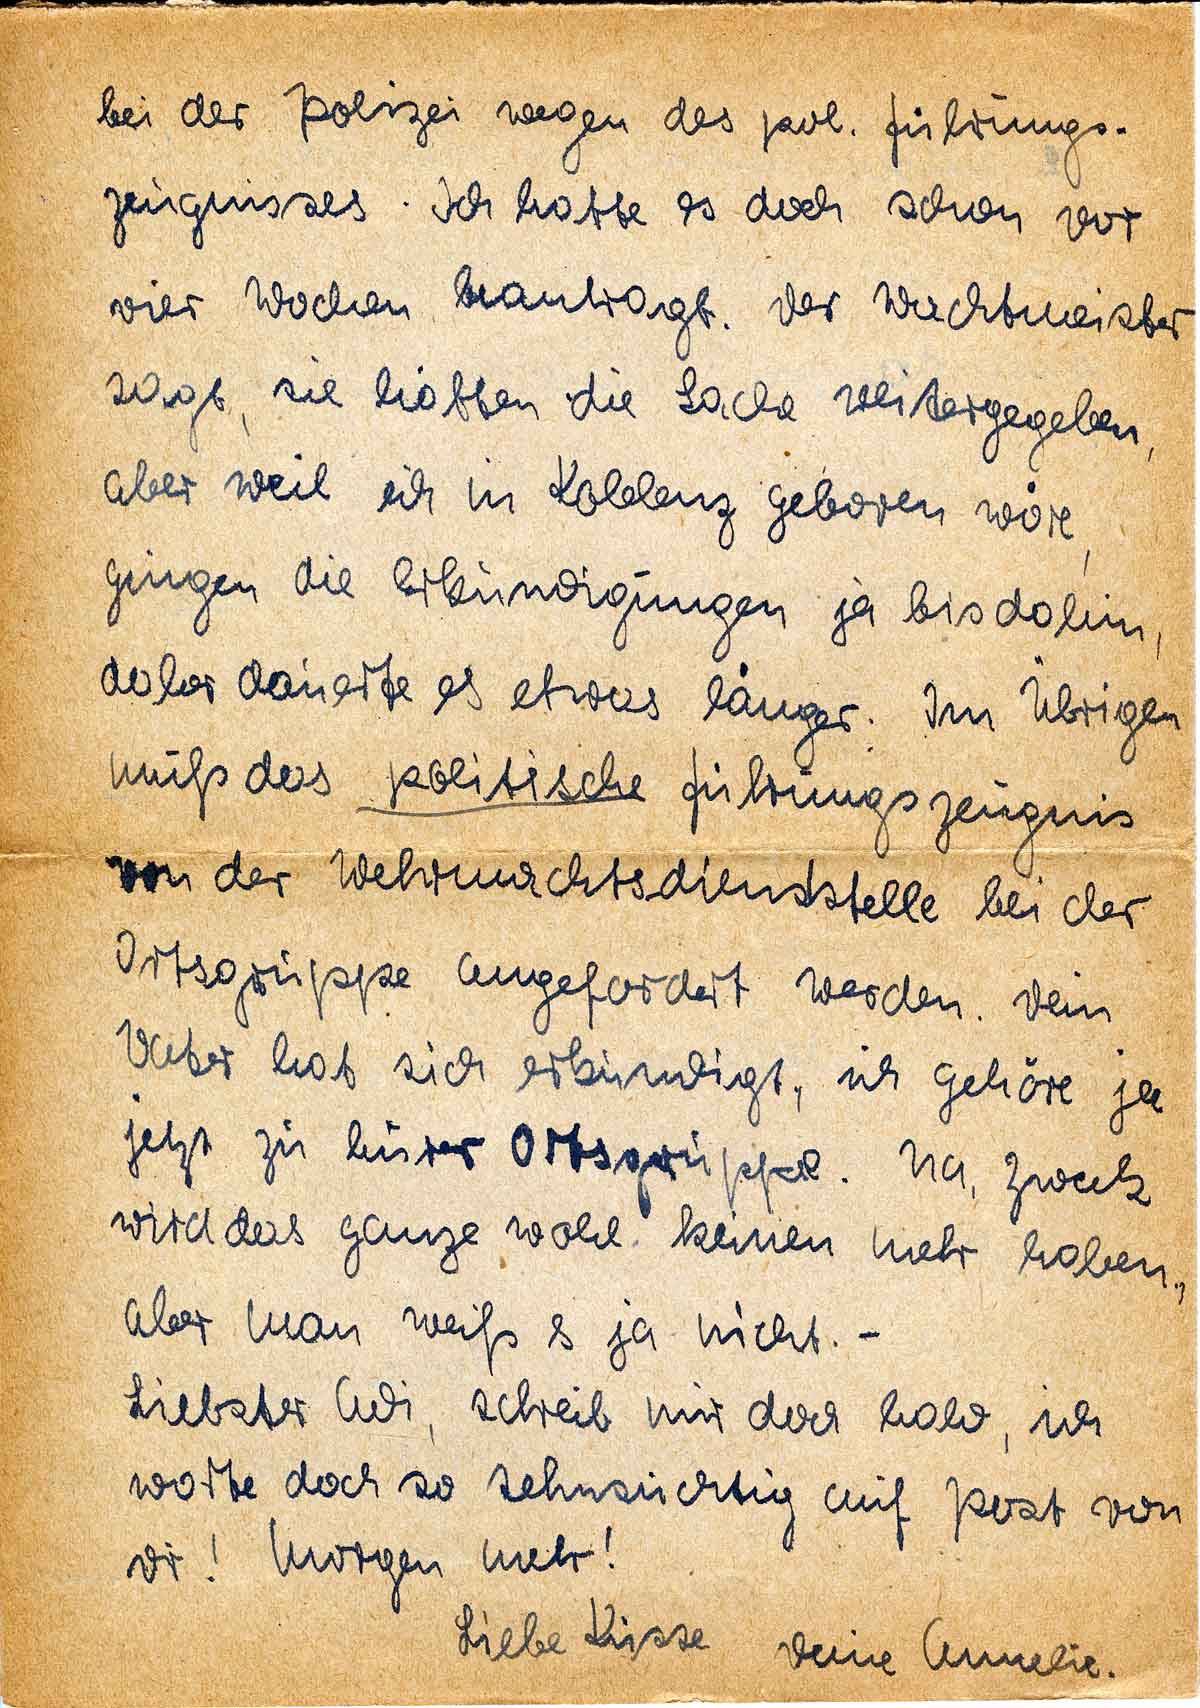 bei der Polizei wegen des pol. Führungs-
zeugnisses. Ich hatte es doch schon vor
vier Wochen beantragt. Der Wachtmeister
sagt, sie hätten die Sache weitergegeben,
aber weil ich in Koblenz geboren wäre,
gingen die Erkundigungen ja bis dahin,
daher dauerte es etwas länger. Im Übrigen
muß das politische Führungszeugnis
von der Wehrmachtsdienststelle bei der
Ortsgruppe angefordert werden. Dein
Vater hat sich erkundigt, ich gehöre ja
jetzt zu Eurer Ortsgruppe. Na, Zweck
wird das ganze wohl keinen mehr haben,
aber man weiß es ja nicht. –
Liebster Adi, schreib mir doch bald, ich
warte doch so sehnsüchtig auf Post von
Dir! Morgen mehr!
Liebe Küsse Deine Annelie.